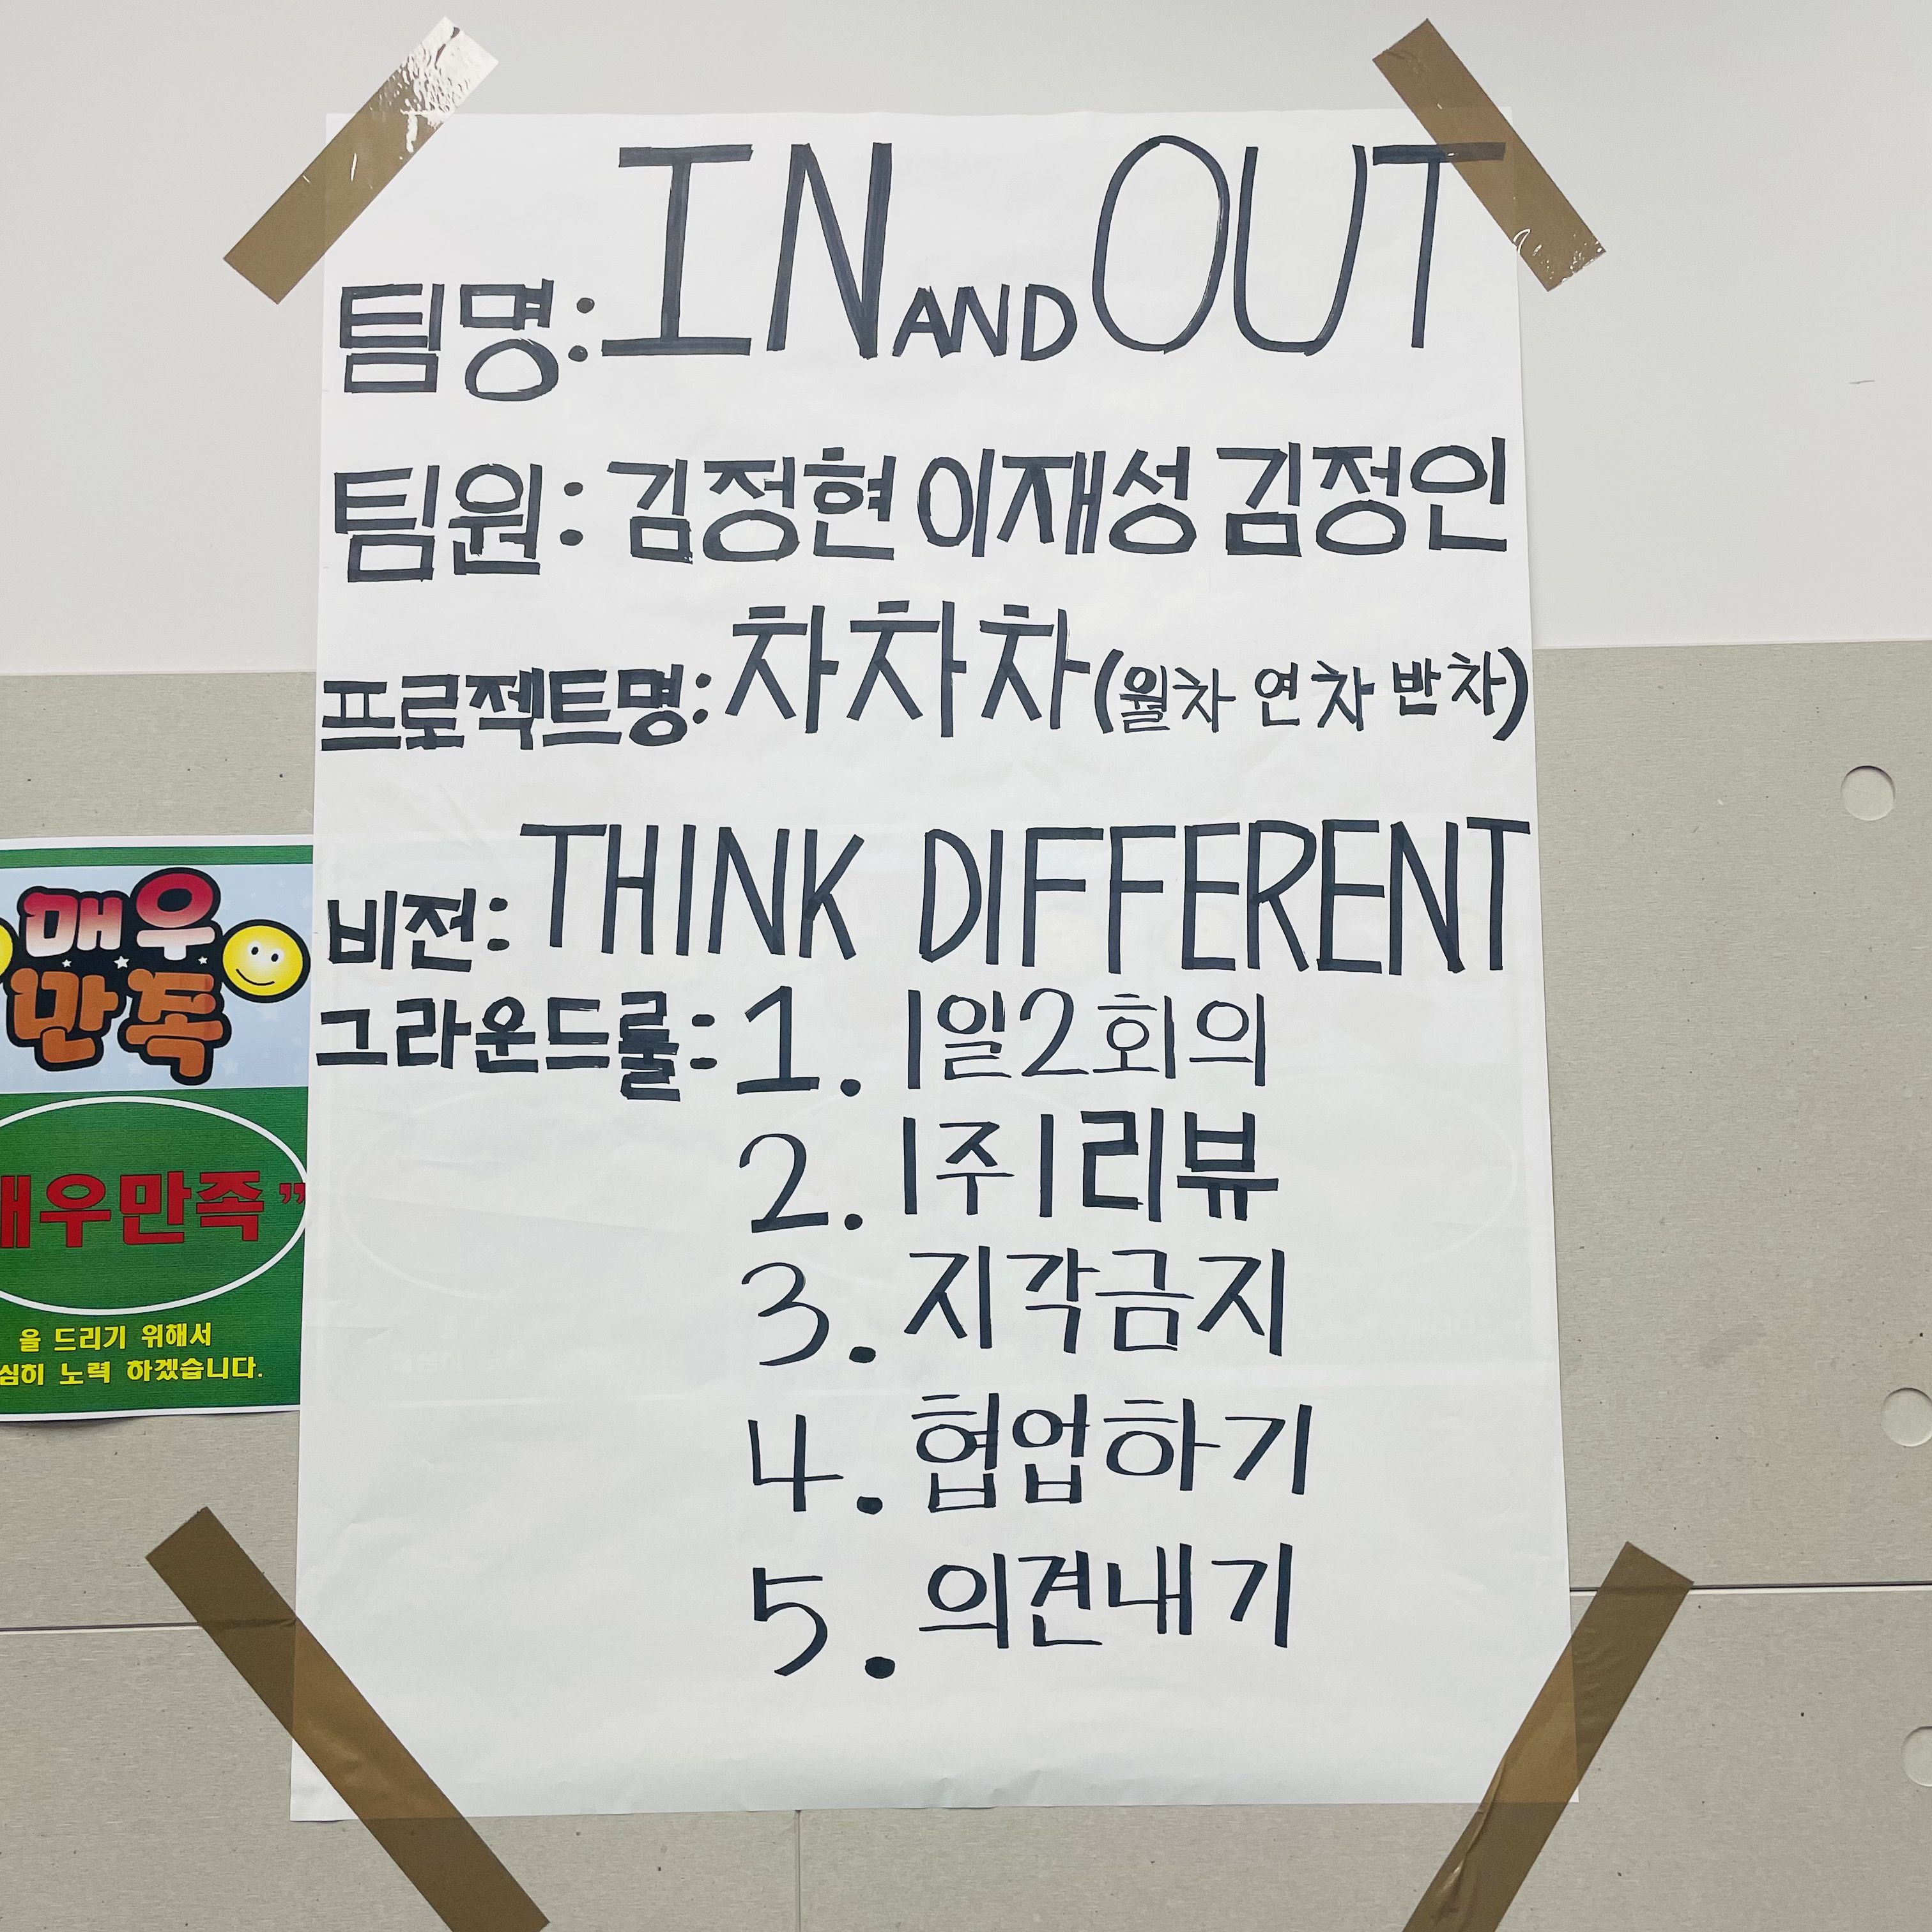 팀명: IN AND OUT
팀원: 김정현 이재성 김정인
프로젝트명: 차차차 (월차 연차 반차)
비전: THINK DIFFERENT
그라운드룰: 1. 1일2회의
2. 1주1리뷰
3. 지각금지
4. 협업하기
5. 의견내기
매우
만족
매우만족"
을 드리기 위해서
심히 노력 하겠습니다.